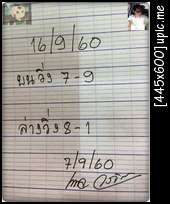 16/9/60
บนวิ่ง 7-9
ล่างวิ่ง 8-1
7/9/60
[445x600] upic.me